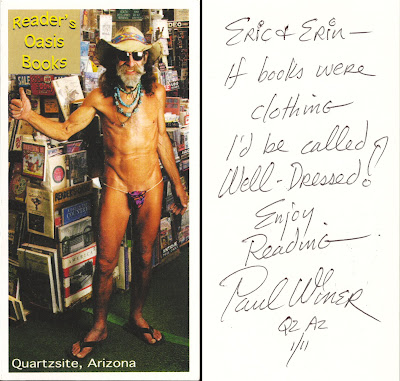 Reader's
Oasis
Books
SALE
Quartzsite, Arizona
Eric & Erin—
If books were
clothing
I'd be called
Well-Dressed!
Enjoy
Reading
Paul Winer
QZ AZ
1/11